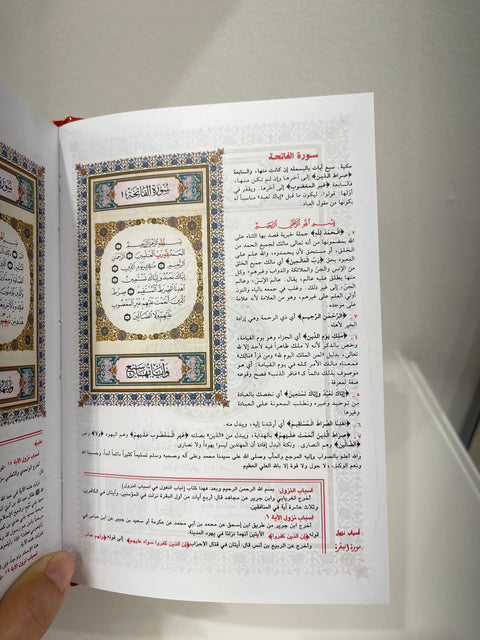 سورة الفاتحة
مكية. سبع آيات بالبسملة إن كانت منها، والسابعة
﴿صراط الذين﴾ إلى آخرها وإن لم تكن منها،
فالسابعة ﴿غير المغضوب﴾ إلى آخرها. ويقدر في
أولها: قولوا، ليكون ما قبل ﴿إياك نعبد﴾ مناسبا له
بكونها من مقول العباد.
بسم الله الرحمن الرحيم
٢ ـ ﴿الحمد لله﴾ جملة خبرية قصد بها الثناء على
الله بمضمونها من أنه تعالى مالك لجميع الحمد من
الخلق، أو مستحق لأن يحمدوه، والله علم على
المعبود بحق ﴿رب العالمين﴾ أي مالك جميع الخلق
من الإنس والجن والملائكة والدواب وغيرهم، وكل
منها يطلق عليه عالم، يقال: عالم الإنس، وعالم
الجن، إلى غير ذلك، وغلب في جمعه بالياء والنون
أولي العلم على غيرهم، وهو من العلامة لأنه علامة
على موجده.
٣ ـ ﴿الرحمن الرحيم﴾ أي ذي الرحمة وهي إرادة
الخير لأهله.
٤ ـ ﴿مالك يوم الدين﴾ أي الجزاء وهو يوم القيامة،
وخص بالذكر لأنه لا ملك ظاهراً فيه لأحد إلا لله
تعالى، بدليل: لمن الملك اليوم؟ لله، ومن قرأ «مالك»
فمعناه مالك الأمر كله في يوم القيامة، أي هو
موصوف بذلك دائماً كـ «غافر الذنب» فصح وقوعه
صفة لمعرفة.
٥ ـ ﴿إياك نعبد وإياك نستعين﴾ أي نخصك بالعبادة
من توحيد وغيره ونطلب المعونة على العبادة
وغيرها.
٦ ـ ﴿اهدنا الصراط المستقيم﴾ أي أرشدنا إليه، ويبدل منه.
٧ ـ ﴿صراط الذين أنعمت عليهم﴾ بالهداية، ويبدل من «الذين» بصلته ﴿غير المغضوب عليهم﴾ وهم اليهود ﴿ولا﴾ وغير
﴿الضالين﴾ وهم النصارى. ونكتة البدل إفادة أن المهتدين ليسوا يهوداً ولا نصارى.
والله أعلم بالصواب وإليه المرجع والمآب وصلى الله على سيدنا محمد وعلى آله وصحبه وسلم تسليماً كثيراً دائماً أبداً. وحسبنا الله
ونعم الوكيل، ولا حول ولا قوة إلا بالله العلي العظيم.
سورة الفاتحة
بسم الله الرحمن الرحيم
الحمد لله رب العالمين الرحمن
الرحيم مالك يوم الدين
إياك نعبد وإياك نستعين
اهدنا الصراط المستقيم صراط
الذين أنعمت عليهم غير المغضوب
عليهم ولا الضالين
وآياتها سبع
أسباب النزول بسم الله الرحمن الرحيم وبعد: فهذا كتاب (لباب النقول في أسباب النزول)
أخرج الفريابي وابن جرير عن مجاهد قال: أربع آيات من أول البقرة نزلت في المؤمنين، وآيتان في الكافرين،
وثلاث عشرة آية في المنافقين.
أسباب نزول الآية ٦
أخرج ابن جرير من طريق ابن إسحق عن محمد بن أبي محمد عن عكرمة أو سعيد بن جبير عن ابن عباس في
قوله ﴿إن الذين كفروا﴾ الآيتين أنهما نزلتا في يهود المدينة.
وأخرج عن الربيع بن أنس قال: آيتان في قتال الأحزاب ﴿إن الذين كفروا سواء عليهم﴾ إلى قوله ﴿ولهم عذاب